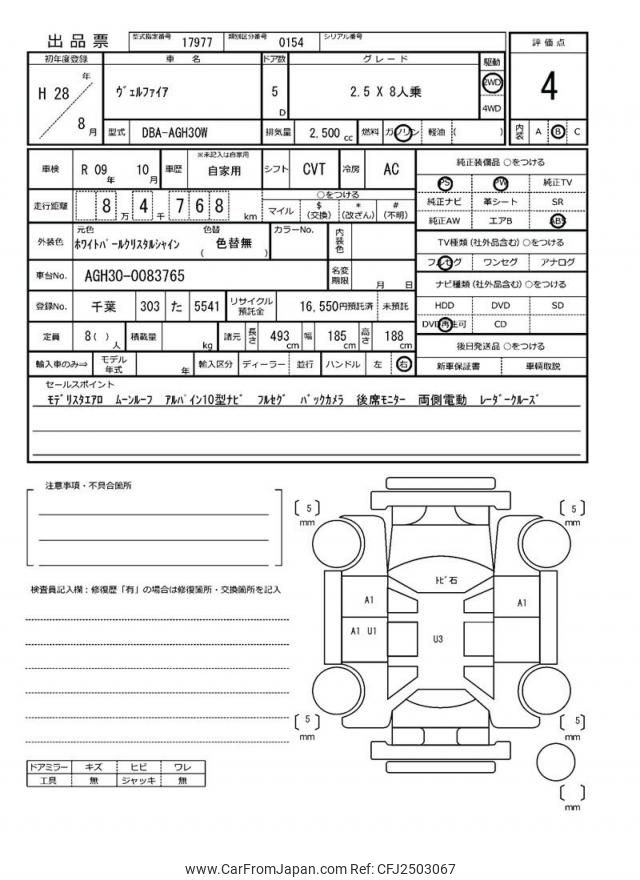 出品票 型式指定番号 17977 類別区分番号 0154 シリアル番号
初年度登録 車名 ドア数 グレード 駆動 評価点
H 28 年 8 月 ヴェルファイア 5 D 2.5 X 8人乗 2WD 4WD 4
型式 DBA-AGH30W 排気量 2,500 cc 燃料 ガソリン 軽油 ( ) 内装 A B C
車検 R 09 年 10 月 車歴 ※未記入は自家用 自家用 シフト CVT 冷房 AC 純正装備品 ○をつける
PS PW 純正TV
走行距離 8 万 4 千 7 6 8 km ○をつける マイル $ (交換) * (改ざん) # (不明) 純正ナビ 革シート SR
純正AW エアB ABS
外装色 元色 ホワイトパールクリスタルシャイン 色替 ( 色替無 ) カラーNo. 内装色 TV種類 (社外品含む) ○をつける
フルセグ ワンセグ アナログ
車台No. AGH30-0083765 名変期限 月 日 ナビ種類 (社外品含む) ○をつける
登録No. 千葉 303 た 5541 リサイクル預託金 16,550円預託済 未預託 HDD DVD SD
DVD再生可 CD
定員 8( ) 人 積載量 kg 諸元 長さ 493 cm 幅 185 cm 高さ 188 cm 後日発送品 ○をつける
輸入車のみ⇒ モデル年式 年 輸入区分 ディーラー 並行 ハンドル 左 右 新車保証書 車輌取説
セールスポイント
モデリスタエアロ ムーンルーフ アルパイン10型ナビ フルセグ バックカメラ 後席モニター 両側電動 レーダークルーズ
注意事項・不具合箇所
〔 5 〕 mm 〔 5 〕 mm
トビ石
検査員記入欄:修復歴「有」の場合は修復箇所・交換箇所を記入
A1 A1
A1 U1 U3
〔 5 〕 mm 〔 5 〕 mm
ドアミラー キズ ヒビ ワレ
工具 無 ジャッキ 無
〔 〕 mm
www.CarFromJapan.com Ref: CFJ2503067